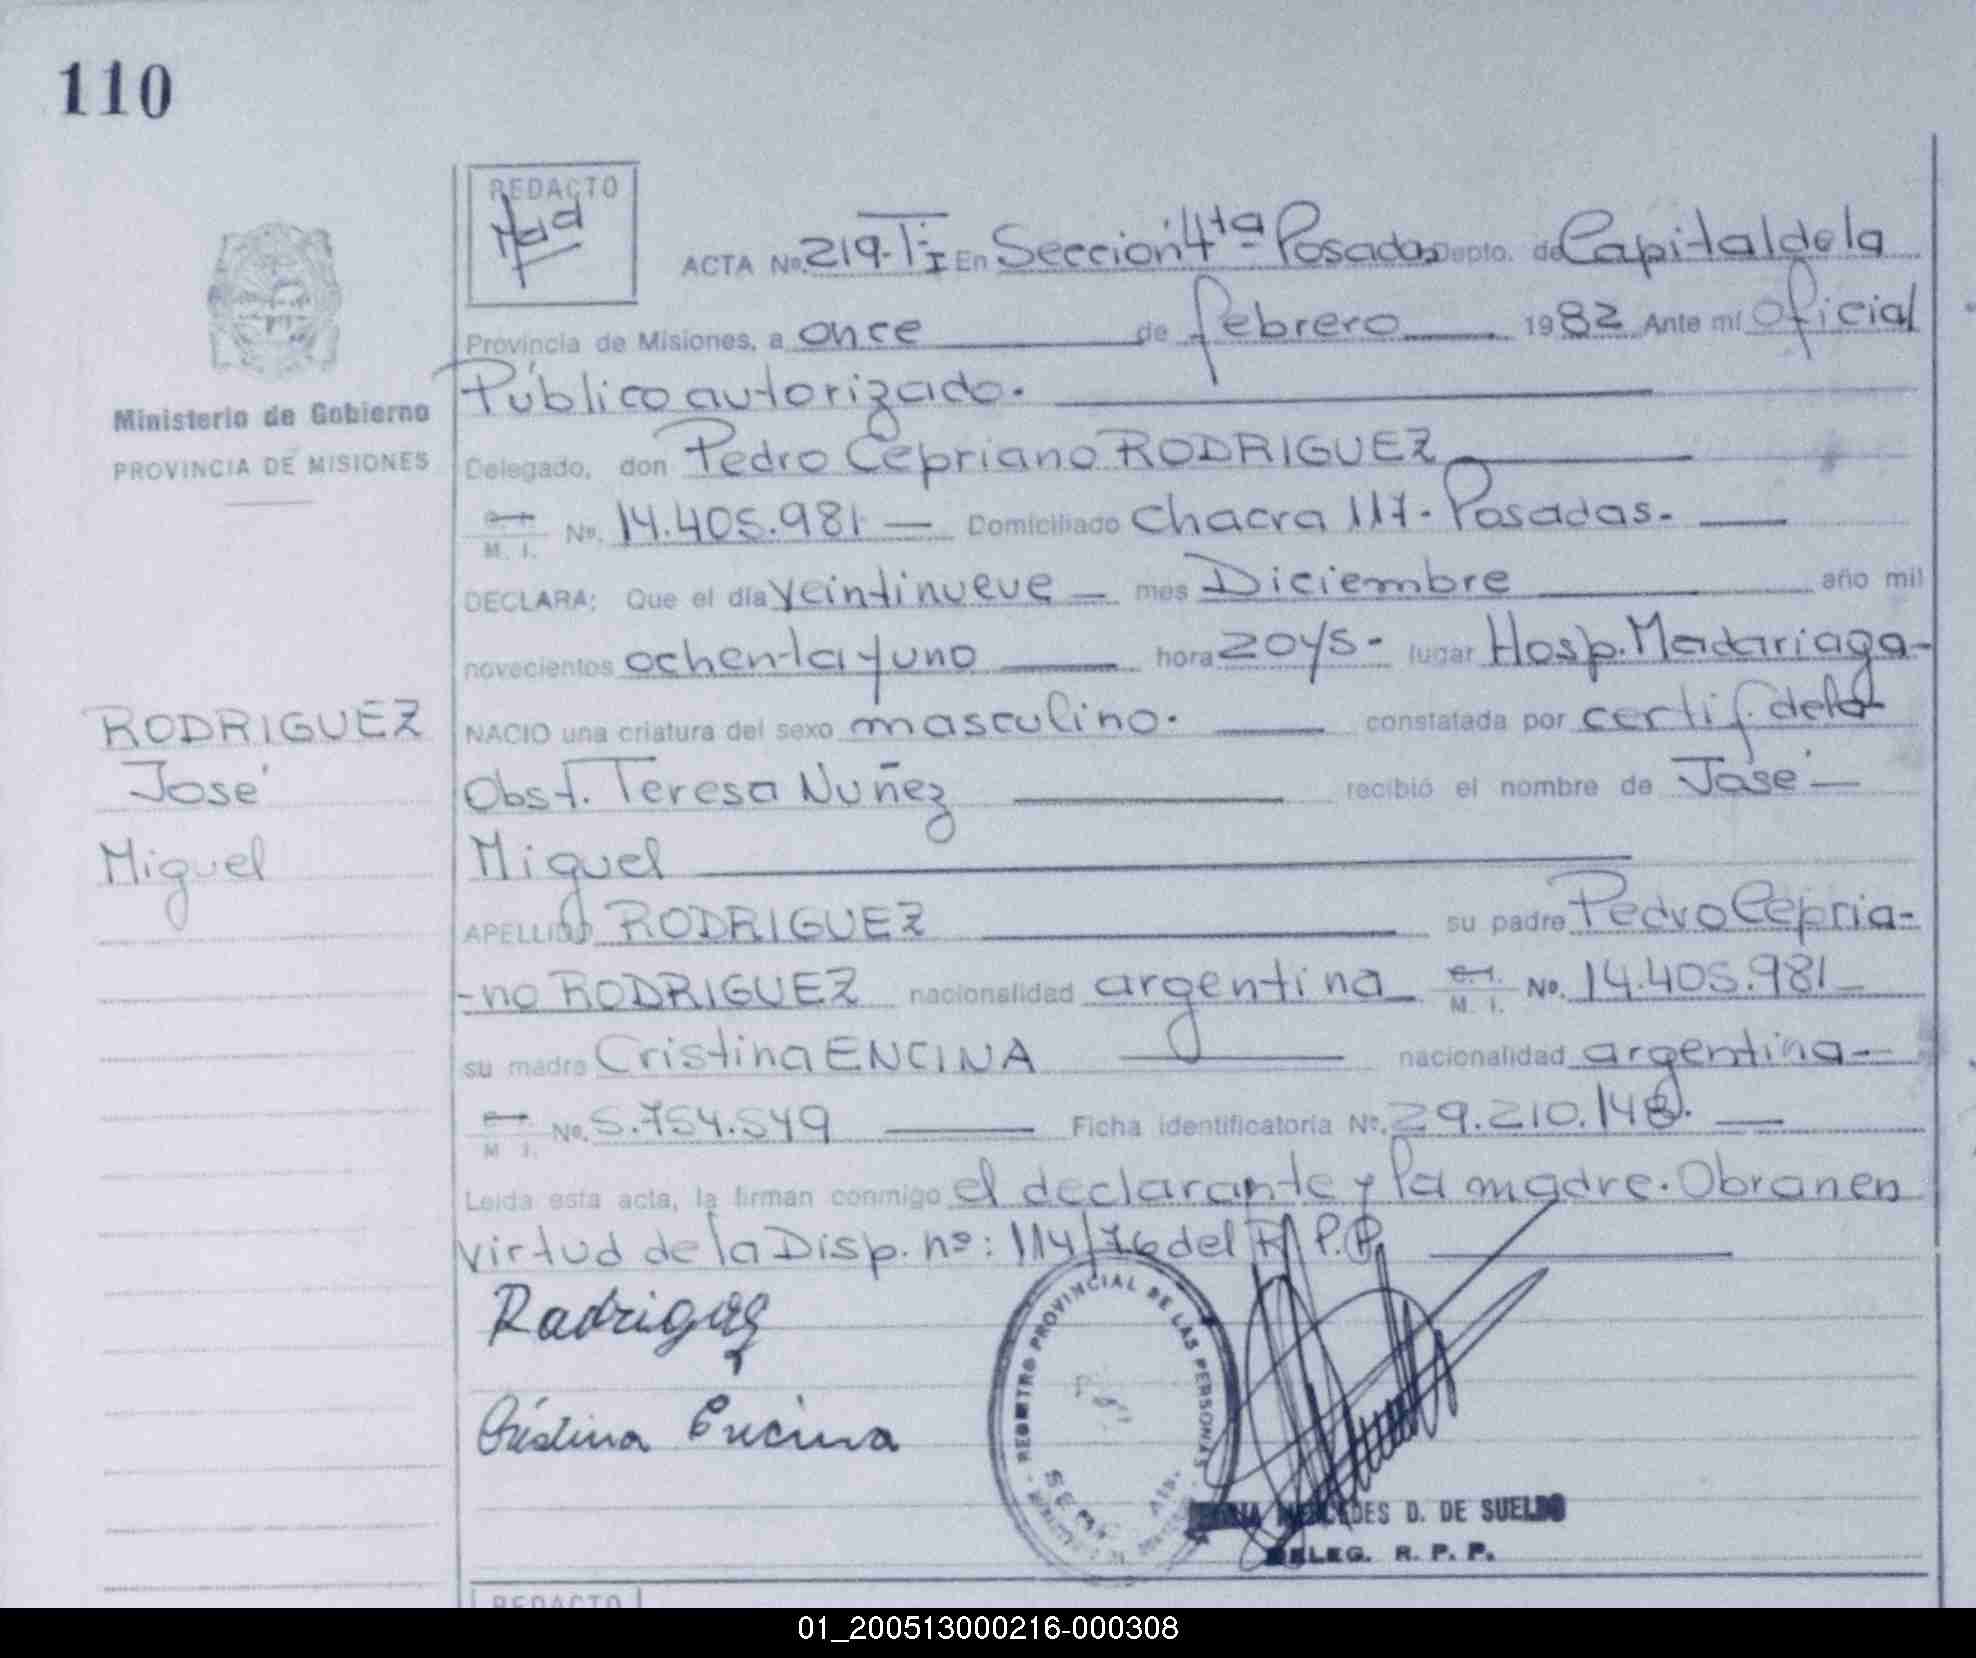 110
REDACTO
ACTA Nº 219-TI En Sección 4ta Posadas Depto. de Capital de la
Provincia de Misiones, a once de febrero 1982 Ante mí Oficial
Público autorizado.
Ministerio de Gobierno
PROVINCIA DE MISIONES
Delegado, don Pedro Cepriano RODRIGUEZ
M. I. Nº. 14.405.981 Domiciliado Chacra 117. Posadas.
DECLARA: Que el día veintinueve mes Diciembre año mil
novecientos ochenta y uno hora 20y5 lugar Hosp. Madariaga
NACIO una criatura del sexo masculino. constatada por certif. de la
Obst. Teresa Nuñez recibió el nombre de José
Miguel
RODRIGUEZ
José
Miguel
APELLIDO RODRIGUEZ su padre Pedro Cepria-
-no RODRIGUEZ nacionalidad argentina M. I. Nº. 14.405.981
su madre Cristina ENCINA nacionalidad argentina
M. I. Nº. 5.754.549 Ficha identificatoria Nº. 29.210.148.
Leida esta acta, la firman conmigo el declarante y la madre. Obran en
virtud de la Disp. nº: 114/76 del R.P.P.
Cristina Encina
REGISTRO PROVINCIAL DE LAS PERSONAS
MERCEDES D. DE SUELDO
DELEG. R. P. P.
REDACTO
01_200513000216-000308